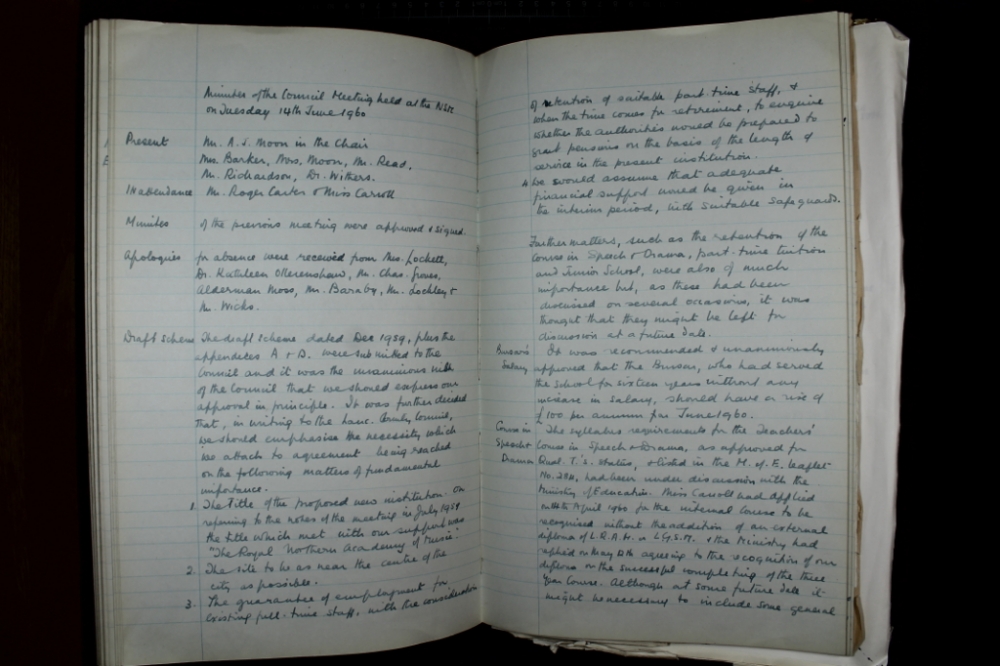 Minutes of the Council Meeting held at the NSM
on Tuesday 14th June 1960
Present Mr. A. J. Moon in the Chair
Mrs. Barker, Mrs. Moon, Mr. Read,
Mr. Richardson, Dr. Withers.
In attendance Mr. Roger Carter & Miss Carroll
Minutes of the previous meeting were approved & signed.
Apologies for absence were received from Mrs. Lockett,
Dr. Kathleen Ollerenshaw, Mr. Chas. Groves,
Alderman Moss, Mr. Barnby, Mr. Lockley &
Mr. Wicks.
Draft Scheme The draft scheme dated Dec 1959, plus the
appendices A & B. were submitted to the
Council and it was the unanimous will
of the Council that we should express our
approval in principle. It was further decided
that, in writing to the Lanc. County Council,
we should emphasise the necessity which
we attach to agreement being reached
on the following matters of fundamental
importance.
1. The title of the proposed new institution. On
referring to the notes of the meeting in July 1959
the title which met with our support was
"The Royal Northern Academy of Music"
2. The site to be as near the centre of the
city as possible.
3. The guarantee of employment for
existing full-time staff, with the consideration
of retention of suitable part-time staff, &
when the time comes for retirement, to enquire
whether the authorities would be prepared to
grant pensions on the basis of the length of
service in the present institution.
4 We would assume that adequate
financial support would be given in
the interim period, with suitable safeguards.
Further matters, such as the retention of the
Course in Speech & Drama, part-time tuition
and Junior School, were also of much
importance but, as these had been
discussed on several occasions, it was
thought that they might be left for
discussion at a future date.
Bursar's It was recommended & unanimously
Salary approved that the Bursar, who had served
the School for sixteen years without any
increase in salary, should have a rise of
£100 per annum from June 1960.
Course in The syllabus requirements for the Teachers'
Speech & Course in Speech & Drama, as approved for
Drama Qual. T.'s. status, & listed in the M. of E. leaflet
No. had been under discussion with the
Ministry of Education. Miss Carroll had applied
on April 1960 for the internal Course to be
recognised without the addition of an external
diploma of L.R.A.M. or L.G.S.M. & the Ministry had
replied on May 10th agreeing to the recognition of our
diploma on the successful completing of the three
year Course. Although at some future date it
might be necessary to include some general